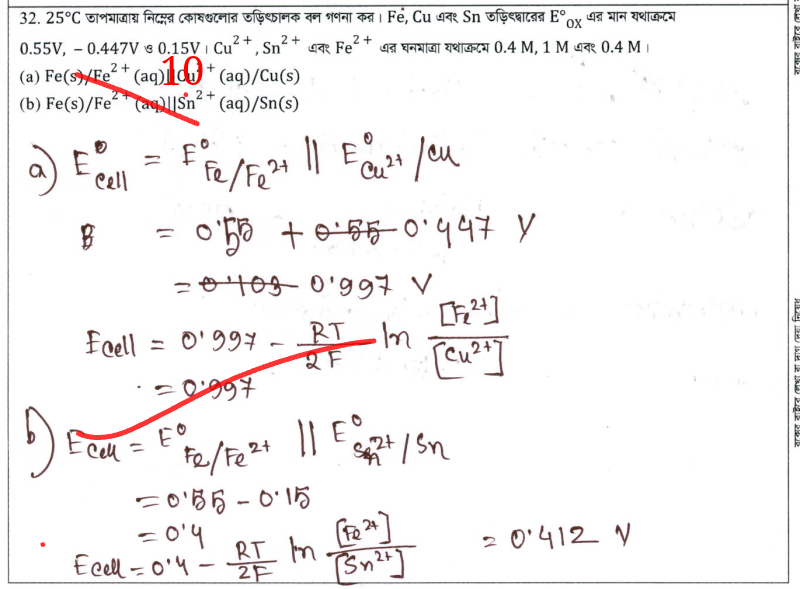 32. 25°C তাপমাত্রায় নিম্নের কোষগুলোর তড়িচ্চালক বল গণনা কর। Fe, Cu এবং Sn তড়িৎদ্বারের E°OX এর মান যথাক্রমে
0.55V, − 0.447V ও 0.15V। Cu²⁺, Sn²⁺ এবং Fe²⁺ এর ঘনমাত্রা যথাক্রমে 0.4 M, 1 M এবং 0.4 M।
(a) Fe(s)/Fe²⁺ (aq)||Cu²⁺ (aq)/Cu(s)
10
(b) Fe(s)/Fe²⁺ (aq)||Sn²⁺ (aq)/Sn(s)
a) E°cell = E°Fe/Fe²⁺ || E°Cu²⁺/Cu
= 0.55 + 0.55 0.447 V
= 0.103 0.997 V
Ecell = 0.997 - RT/2F ln [Fe²⁺]/[Cu²⁺]
= 0.997
b) Ecell = E°Fe/Fe²⁺ || E°Sn²⁺/Sn
= 0.55 - 0.15
= 0.4
Ecell = 0.4 - RT/2F ln [Fe²⁺]/[Sn²⁺] = 0.412 V